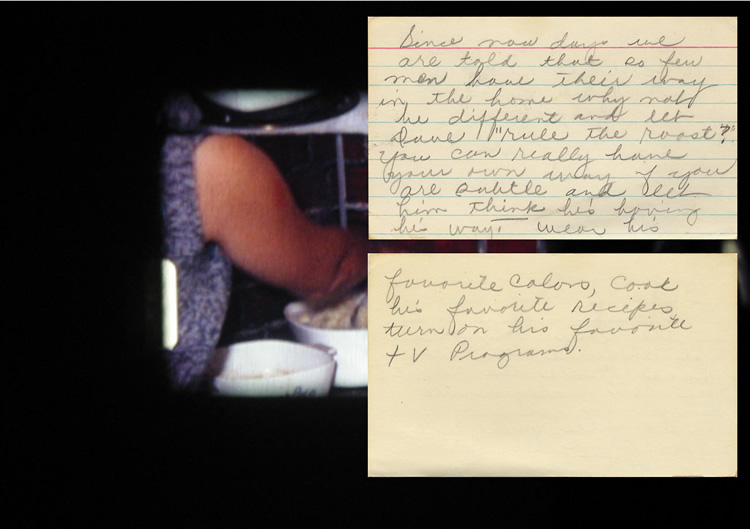 Since now days we
are told that so few
men have their way
in the home why not
be different and let
Dave "rule the roost"?
You can really have
your own way if you
are subtle and let
him think he's having
his way! Wear his
favorite Colors, Cook
his favorite recipes,
turn on his favorite
TV Programs.